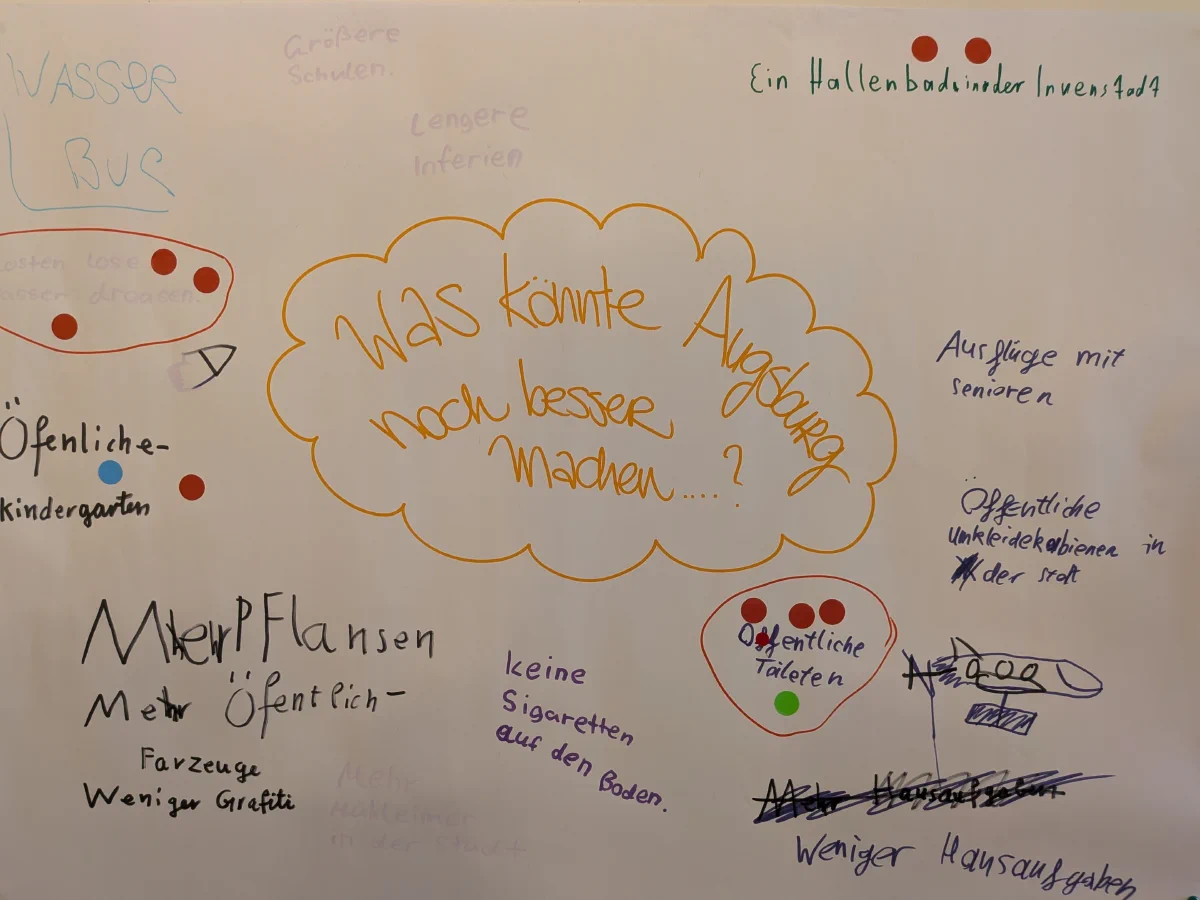 WASSER
BUS
Größere
Schulen.
Lengere
Inferien
Ein Hallenbad in der Invenstadt
osten lose
asser droagen.
Was könnte Augsburg
noch besser
machen....?
Ausflüge mit
senioren
Öfenliche-
kindergarten
Öffentliche
umkleidekabienen in
der statt
Mehr Pflansen
Mehr Öfentlich-
Farzeuge
Weniger Grafiti
keine
Sigaretten
auf den Boden.
Öffentliche
Taileten
Mehr
Mülleimer
in der Stadt
Mehr Hausaufgaben
Weniger Hausaufgaben